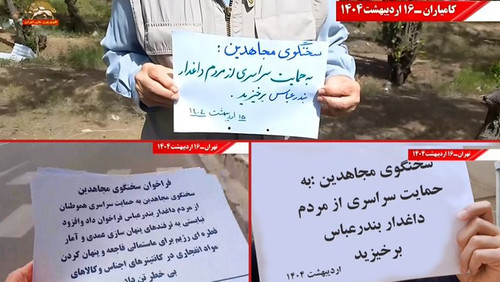 کامیاران ــ ۱۶ اردیبهشت ۱۴۰۴
سخنگوی مجاهدین :
به حمایت سراسری از مردم داغدار
بندرعباس برخیزید .
۱۵ اردیبهشت ۱۴۰۴
تهران ــ ۱۶ اردیبهشت ۱۴۰۴
فراخوان سخنگوی مجاهدین
سخنگوی مجاهدین به حمایت سراسری هموطنان
از مردم داغدار بندرعباس فراخوان داد و افزود
نبایستی به ترفندهای پنهان سازی عمدی و آمار
قطره ای رژیم برای ماستمالی فاجعه و پنهان کردن
مواد انفجاری در کانتینرهای اجناس و کالاهای
بی خطر تن داد
تهران ــ ۱۶ اردیبهشت ۱۴۰۴
سخنگوی مجاهدین :به
حمایت سراسری از مردم
داغدار بندرعباس
برخیزید
اردیبهشت ۱۴۰۴